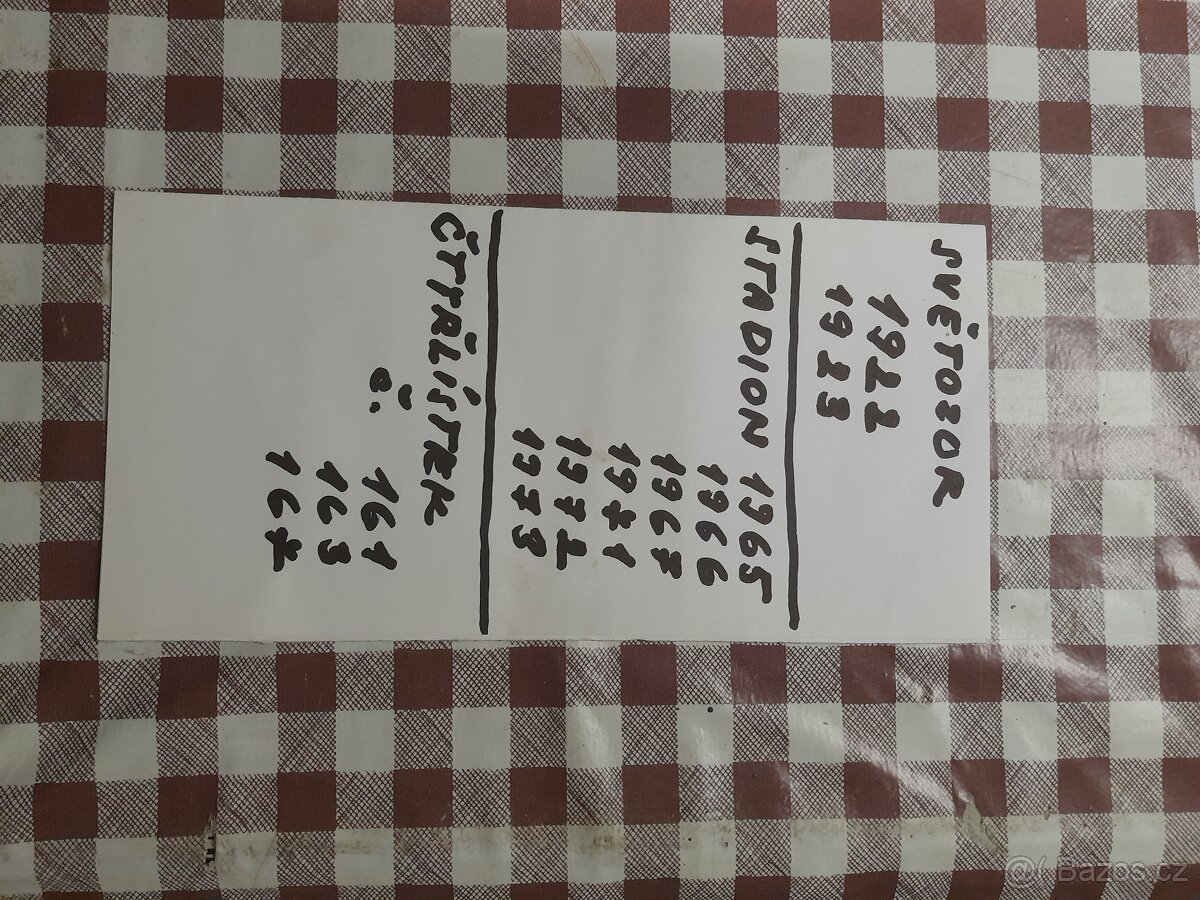 SVĚTOZOR
1922
1923
STADION 1965
1966
1967
1971
1972
1973
ČTYŘLÍSTEK
č. 161
163
167
© Bazos.cz